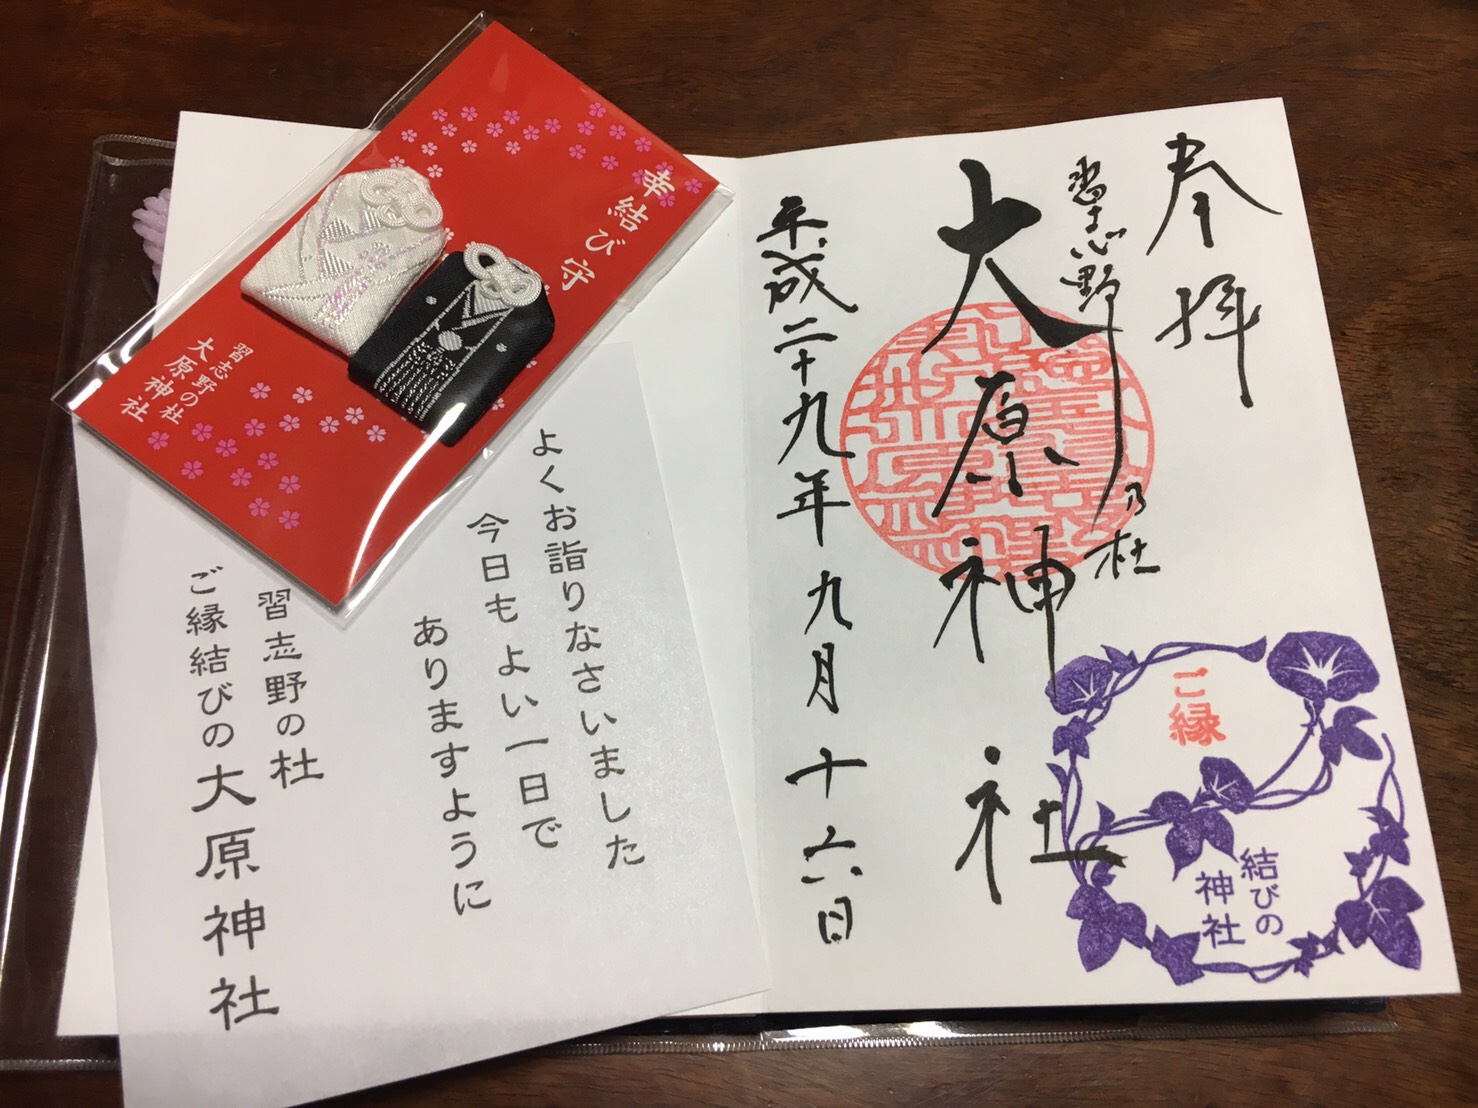 奉拝
習志野乃杜
大原神社
平成二十九年九月十六日
ご縁
結びの
神社
幸結び守
習志野の杜
大原神社
よくお詣りなさいました
今日もよい一日で
ありますように
習志野の杜
ご縁結びの大原神社